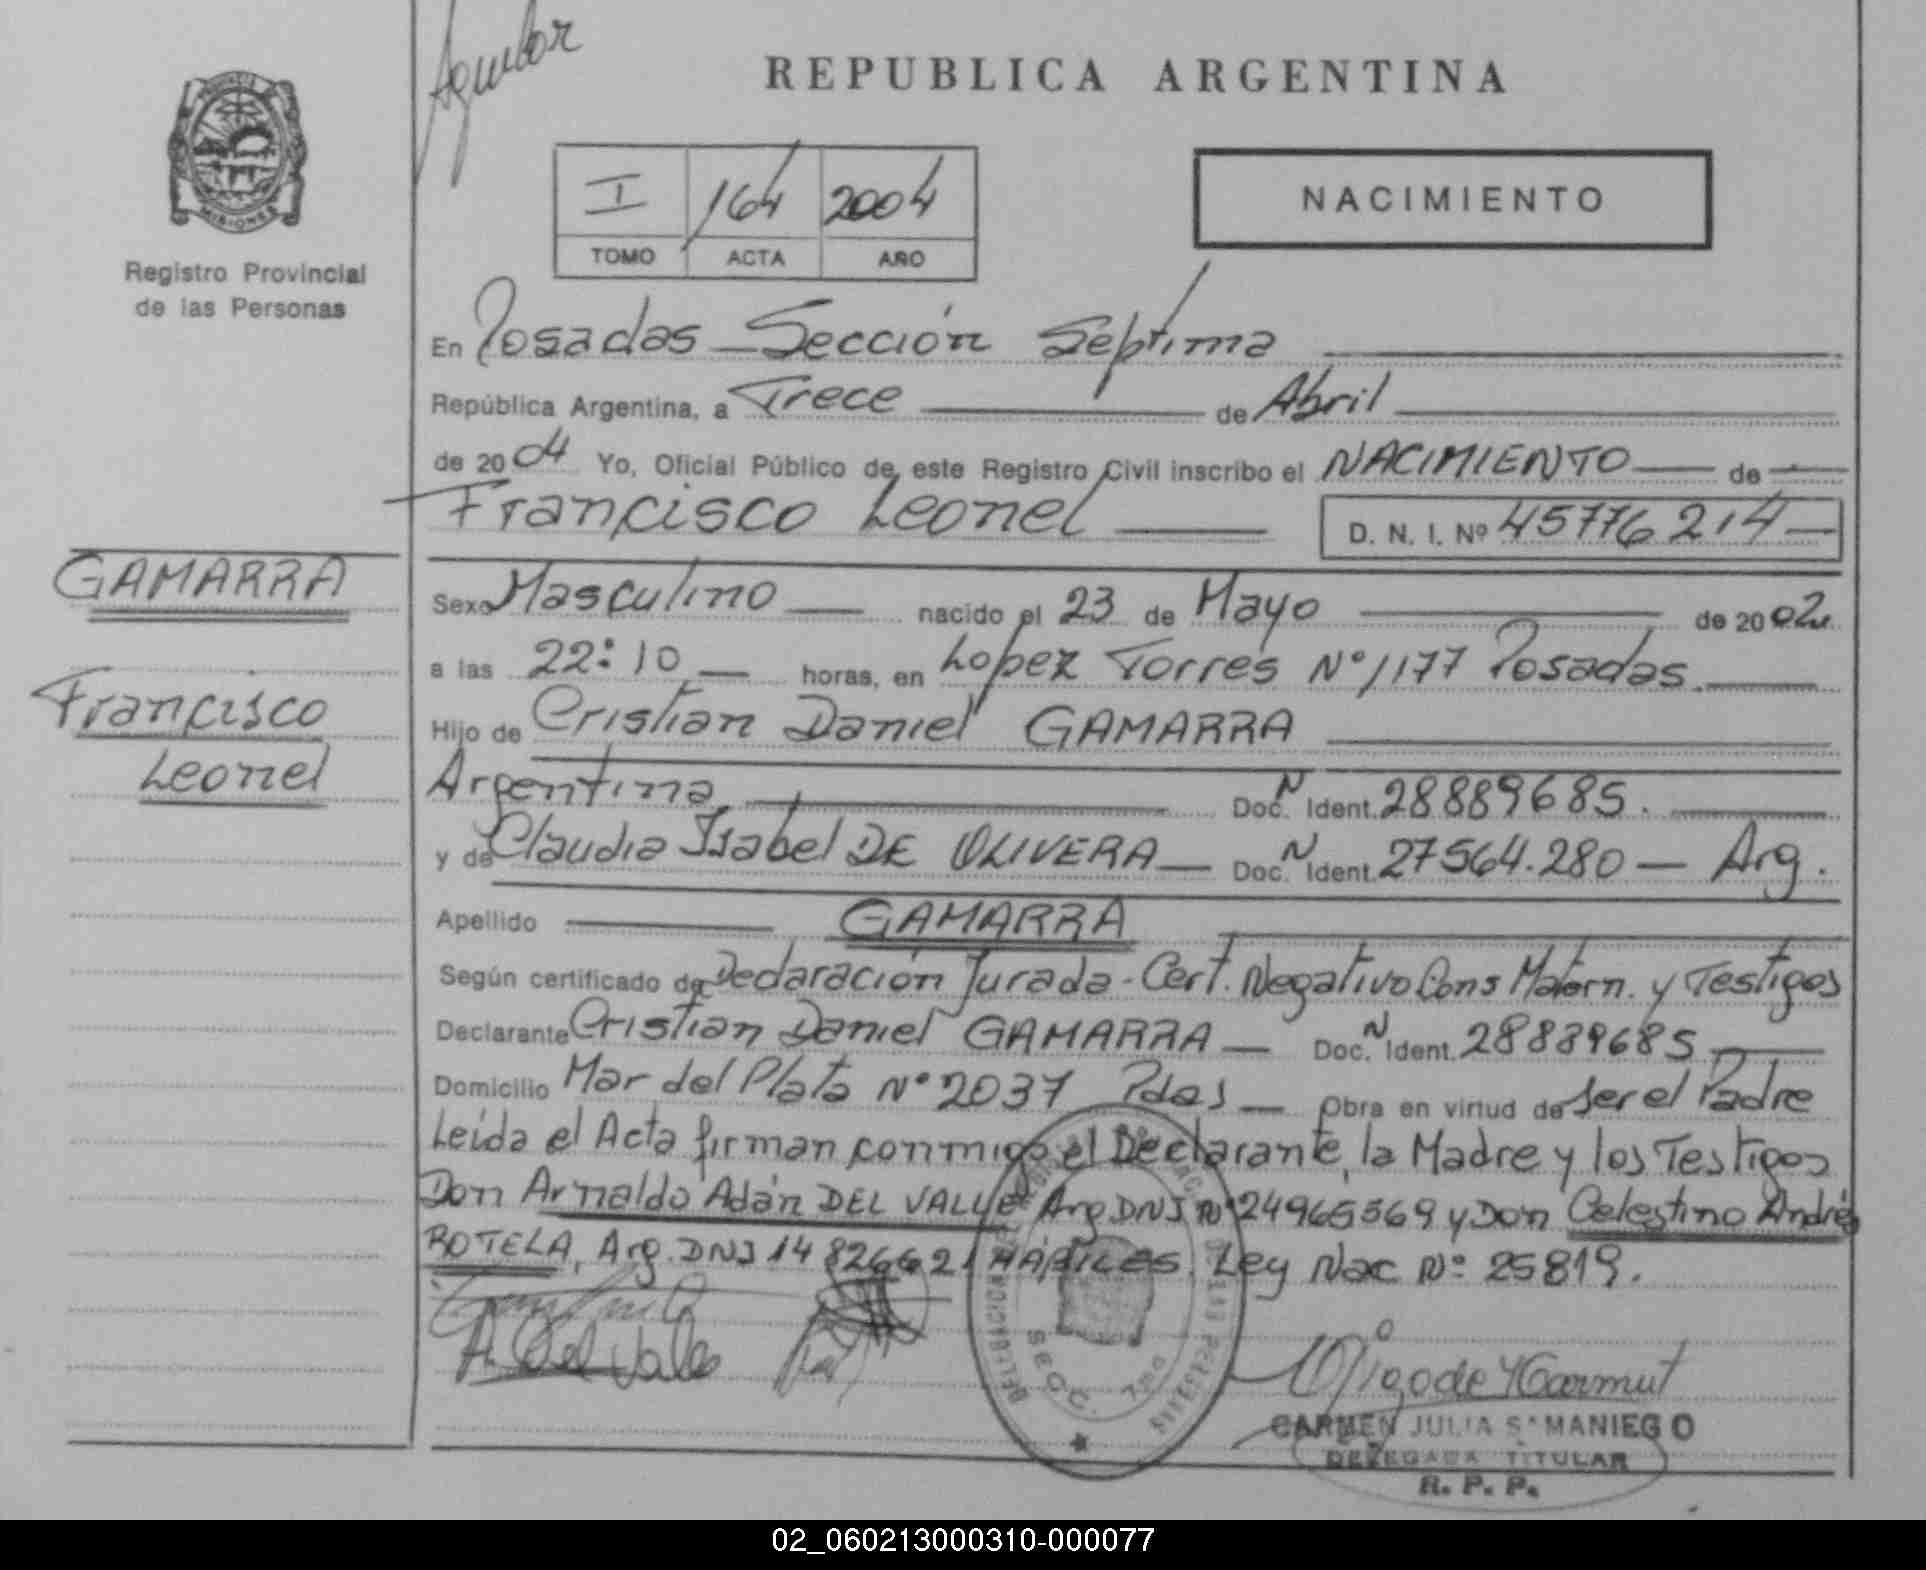 Aguilar
REPUBLICA ARGENTINA
MISIONES
Registro Provincial
de las Personas
I 164 2004
TOMO ACTA AÑO
NACIMIENTO
En Posadas Sección Septima
República Argentina, a Trece de Abril
de 2004 Yo, Oficial Público de este Registro Civil inscribo el NACIMIENTO de
Francisco Leonel D. N. I. Nº 45776214
GAMARRA
Francisco
Leonel
Sexo Masculino nacido el 23 de Mayo de 2002
a las 22:10 horas, en Lopez Torres Nº 1177 Posadas.
Hijo de Cristian Daniel GAMARRA
Argentina, Doc. N Ident. 28889685.
y de Claudia Isabel DE OLIVERA Doc. N Ident. 27564.280 — Arg.
Apellido GAMARRA
Según certificado de Declaración Jurada - Cert. Negativo Cons Matern. y Testigos
Declarante Cristian Daniel GAMARRA Doc. N Ident. 28889685
Domicilio Mar del Plata Nº 2037 Pdas Obra en virtud de ser el Padre
Leída el Acta firman conmigo el Declarante, la Madre y los Testigos
Don Arnaldo Adán DEL VALLE Arg DNI Nº 24965369 y Don Celestino Andrés
BOTELA, Arg. DNI 14826621 HÁBILES. Ley Nac Nº 25819.
A. Del Valle
SECC. 7ma
CARMEN JULIA SAMANIEGO
DELEGADA TITULAR
R. P. P.
02_060213000310-000077